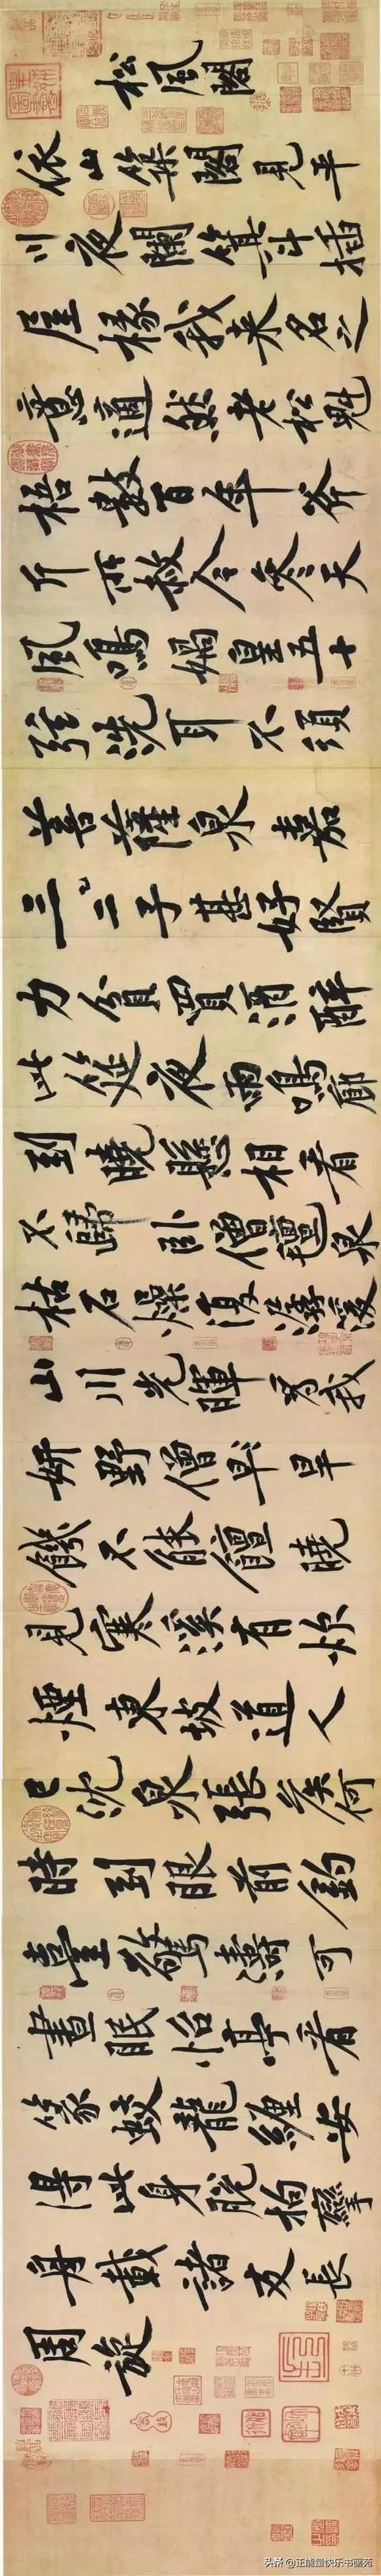 松風閣
依山築閣見平
川夜闌箕斗插
屋椽我來名之
意適然老松魁
梧數百年斧
斤所赦今參天
風鳴媧皇五十
弦洗耳不須
菩薩泉嘉
三二子甚好賢
力貧買酒醉
此筵夜雨鳴廊
到曉懸相看
不歸臥僧氈泉
枯石燥復潺湲
山川光暉為我
妍野僧早旱
饑不能饘曉
見寒溪有炊
煙東坡道人
已沈泉張侯何
時到眼前釣
臺驚濤可
晝眠怡亭看
篆蛟龍纏安
得此身脫拘攣
舟載諸友長
周旋
头条 @正能量快乐书画苑